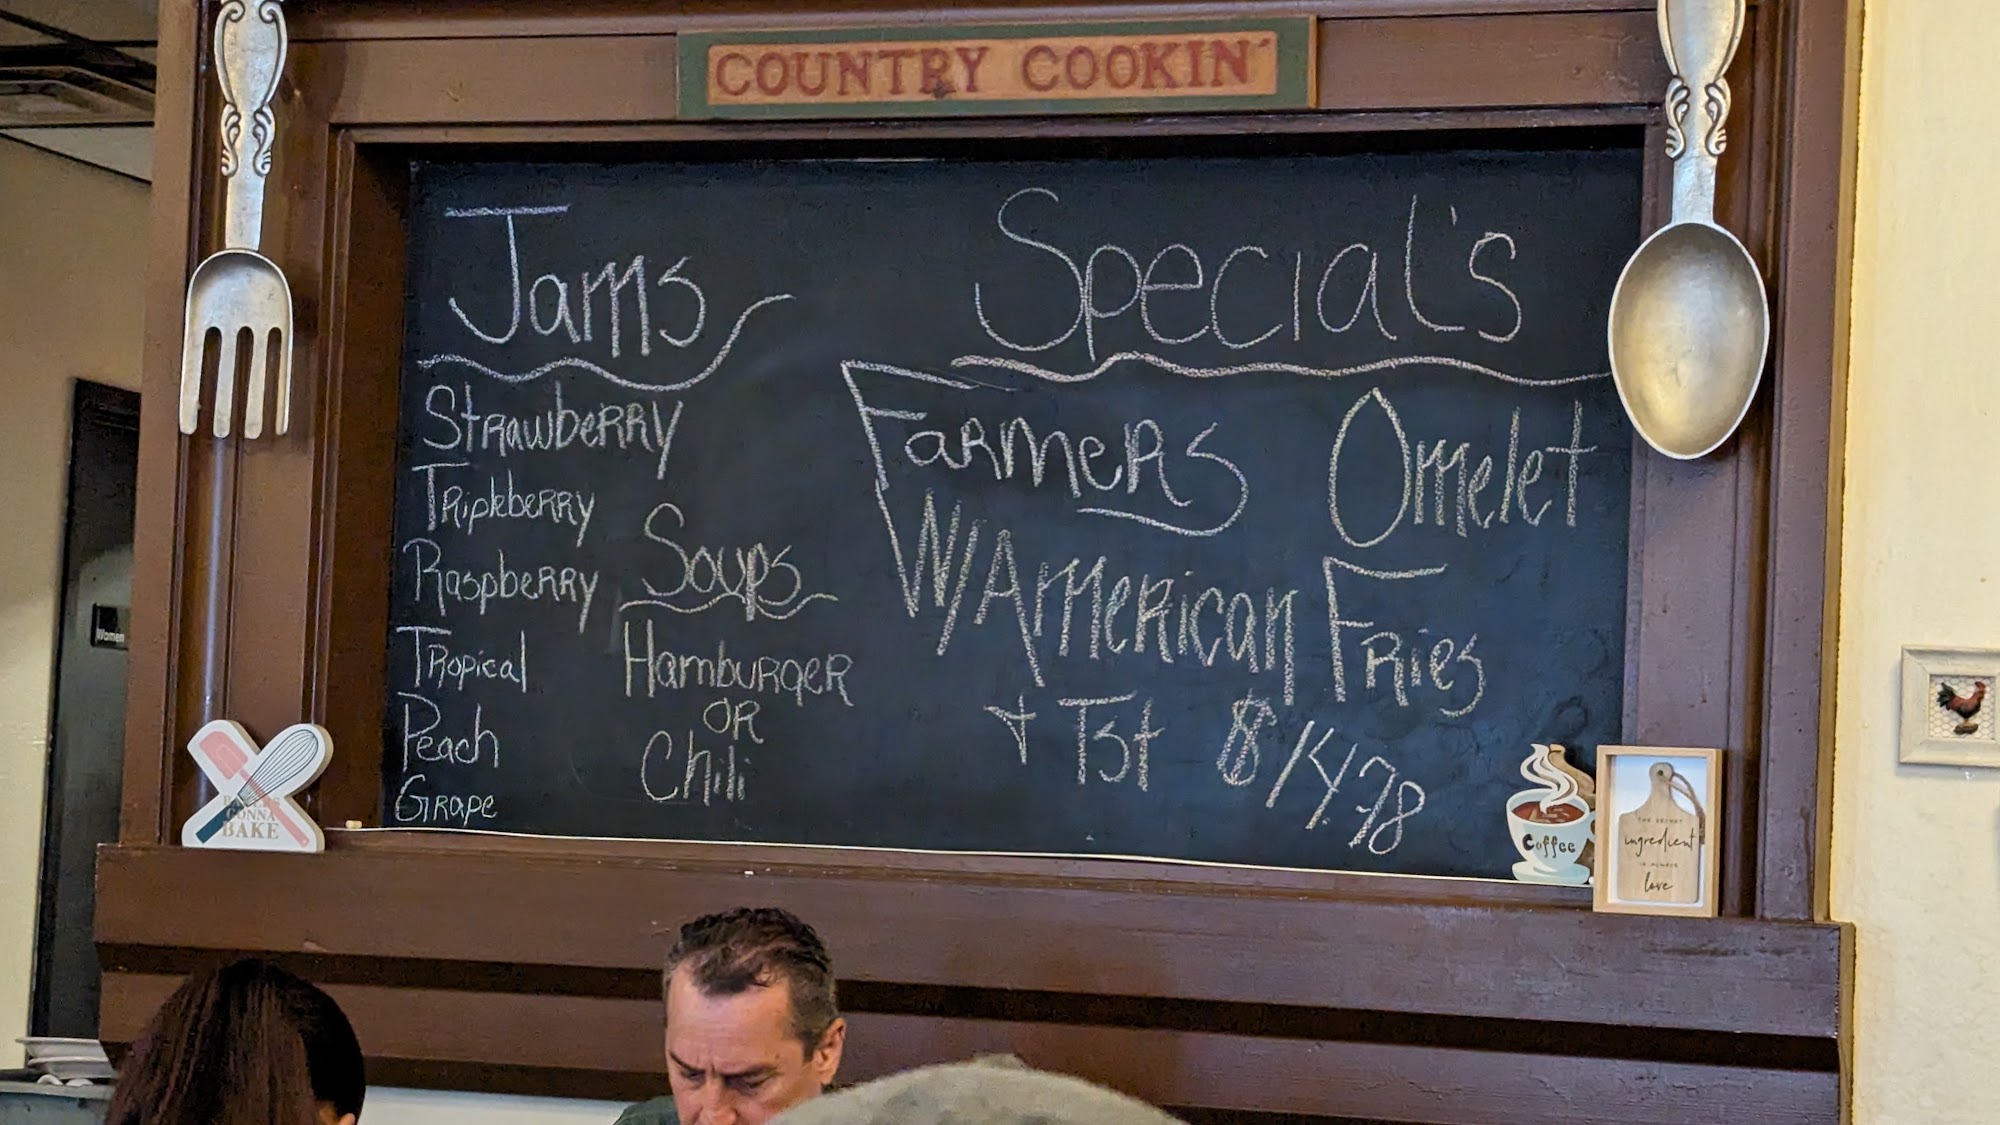 COUNTRY COOKIN'
Jams
Strawberry
Tripleberry
Raspberry
Tropical
Peach
Grape
Soups
Hamburger
OR
Chili
Special's
Farmers Omelet
W/American Fries
+ Tst $14.78
Women
BAKERS
GONNA
BAKE
Coffee
THE SECRET
ingredient
IS ALWAYS
love